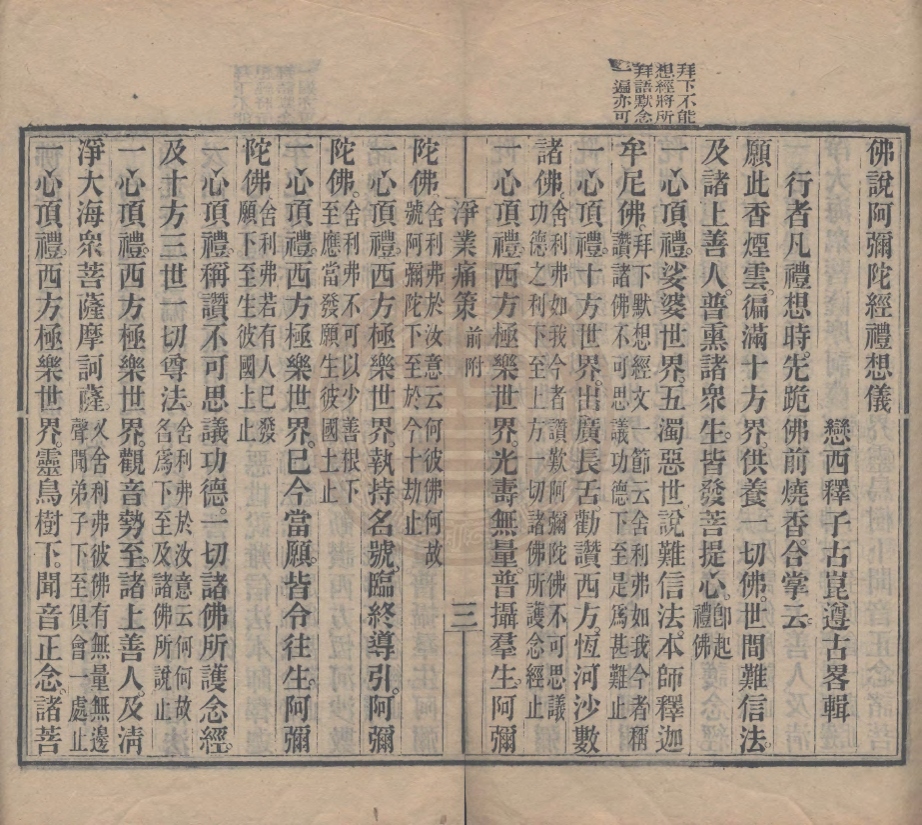 拜下不能
想經將所
拜語默念
一遍亦可
佛說阿彌陀經禮想儀
戀西釋子古崑遵古畧輯
行者凡禮想時。先跪佛前燒香。合掌云。
願此香煙雲。徧滿十方界。供養一切佛。世間難信法。
及諸上善人。普熏諸衆生。皆發菩提心。卽起禮佛
一心頂禮。娑婆世界。五濁惡世說難信法。本師釋迦
牟尼佛。拜下默想經文一節云舍利弗如我今者稱讚諸佛不可思議功德下至是爲甚難止
一心頂禮十方世界。出廣長舌。勸讚西方。恆河沙數
諸佛。舍利弗如我今者讚歎阿彌陀佛不可思議功德之利下至上方一切諸佛所護念經止
一心頂禮。西方極樂世界。光壽無量。普攝羣生。阿彌
淨業痛策 前附 三
陀佛。舍利弗於汝意云何彼佛何故號阿彌陀下至於今十劫止
一心頂禮。西方極樂世界。執持名號。臨終導引。阿彌
陀佛。舍利弗不可以少善根下至應當發願生彼國土止
一心頂禮。西方極樂世界。已今當願。皆令往生。阿彌
陀佛。舍利弗若有人已發願下至生彼國土止
一心頂禮。稱讚不可思議功德。一切諸佛所護念經。
及十方三世一切尊法。舍利弗於汝意云何何故名爲下至及諸佛所說止
一心頂禮。西方極樂世界。觀音勢至。諸上善人。及清
淨大海衆菩薩摩訶薩。又舍利弗彼佛有無量無邊聲聞弟子下至俱會一處止
一心頂禮。西方極樂世界。靈鳥樹下。聞音正念。諸菩